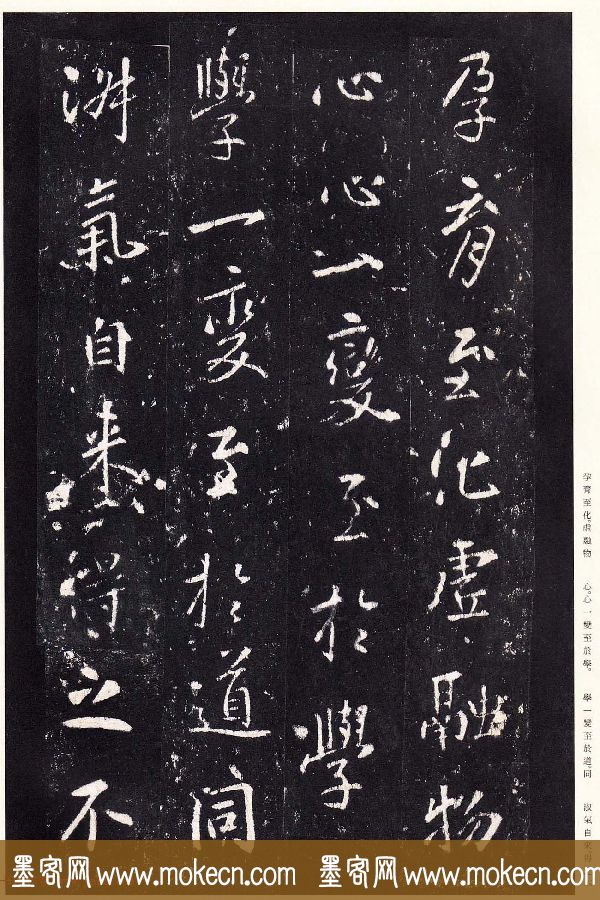 孕育至化虛融物
心心一變至於學
學一變至於道同
淑氣自来得之不
孕育至化。虛融物　心。心一變至於學。　學一變至於道。同　淑氣自
墨客网 www.mokecn.com 墨客网 www.mokecn.com